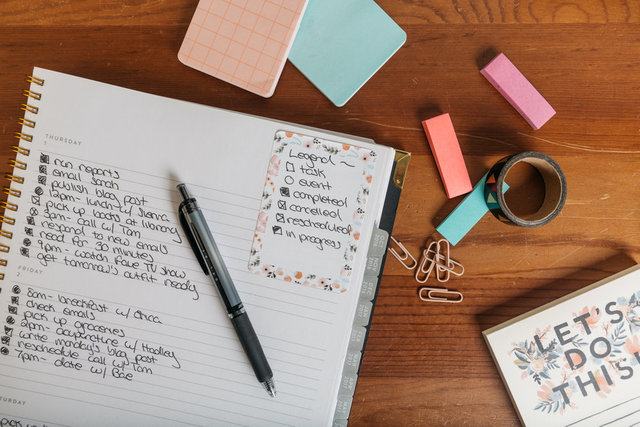 THURSDAY
run reports
email Sarah
publish blog post
12pm- lunch w/ Sienna
pick up books at library
3pm- call w/ Tom
respond to new emails
read for 30 minutes
9pm- watch fave TV show
get tomorrow's outfit ready
FRIDAY
8am- breakfast w/ Erica
check emails
pick up groceries
2pm- acupuncture w/ Hadley
write monday's blog post
reschedule call w/ Tom
7pm- date w/ Bae
Legend
task
event
completed
cancelled
rescheduled
in progress
LET'S
DO
THIS